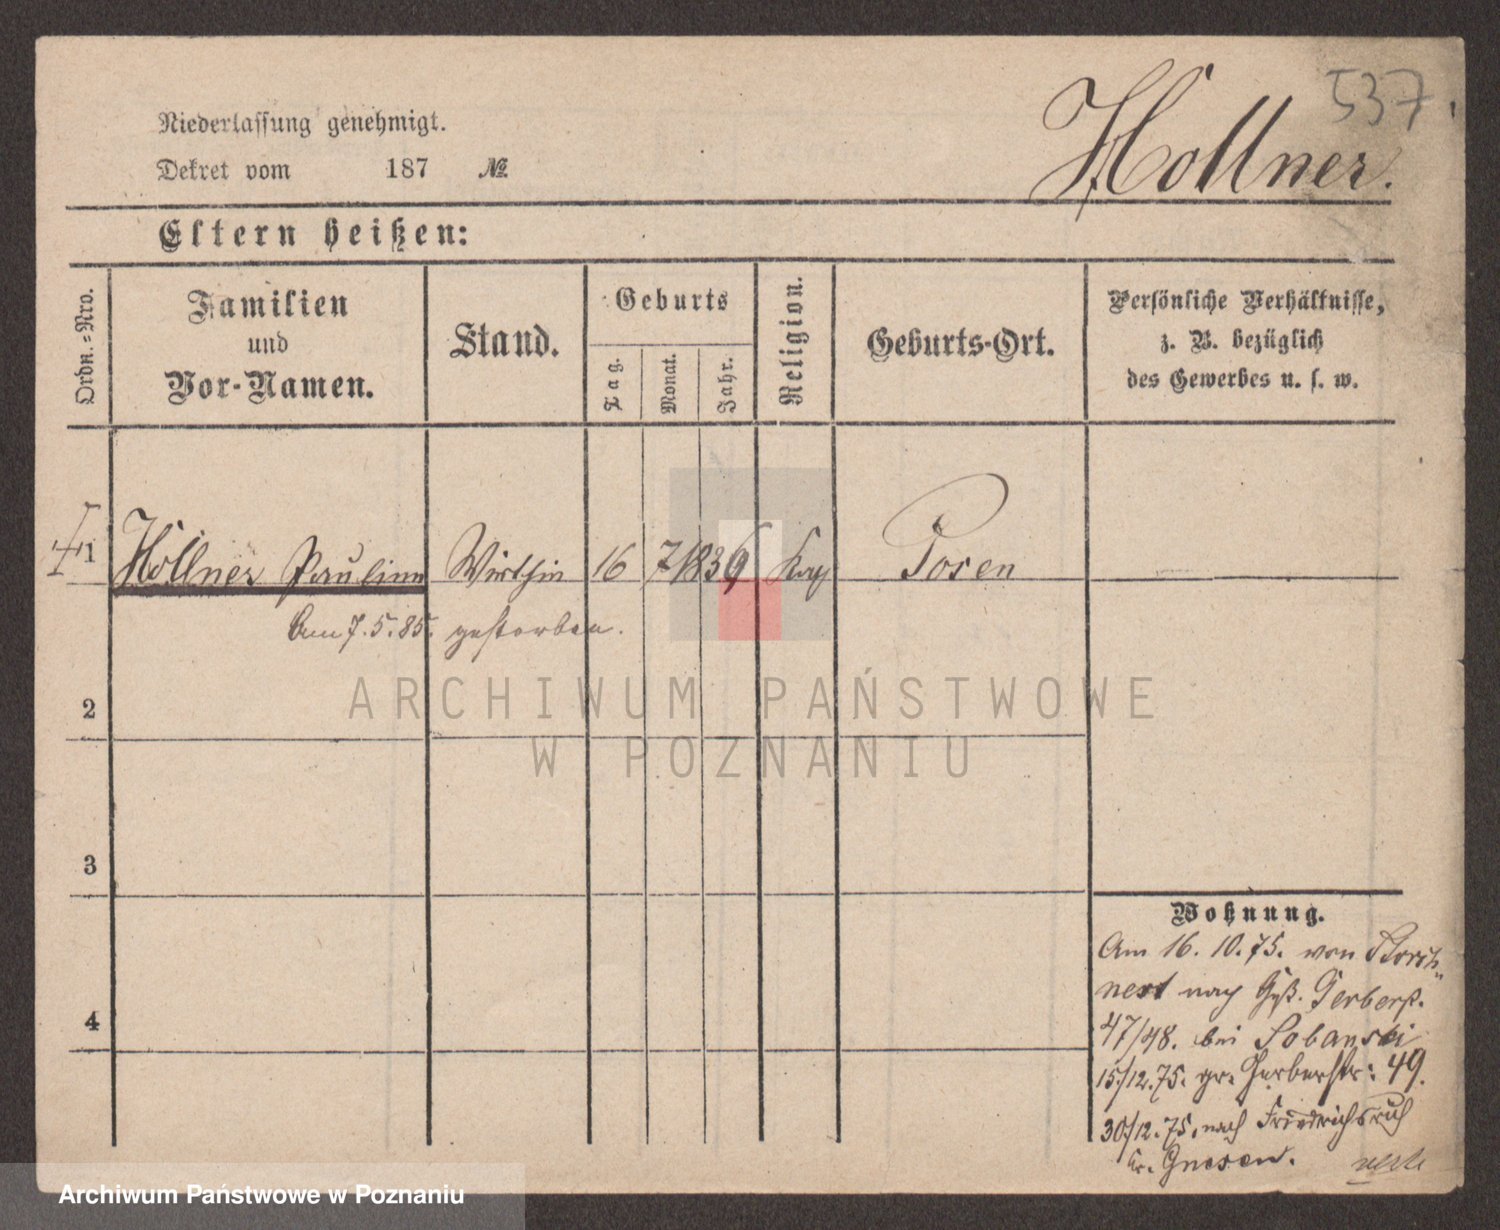 537.
Hollner.
Niederlassung genehmigt.
Dekret vom 187 №
Eltern heißen:
Ordn.=Nro.
Familien
und
Vor-Namen.
Stand.
Geburts
Tag.
Monat.
Jahr.
Religion.
Geburts-Ort.
Persönliche Verhältnisse,
z. B. bezüglich
des Gewerbes u. s. w.
1 Hollner Pauline Wirthin 16 7 1836 Posen
Am 7.5.85. gestorben.
2
ARCHIWUM PAŃSTWOWE
W POZNANIU
3
4
Wohnung.
Am 16. 10. 75. von Storch
nest nach Gr. Gerberst.
47/48. bei Sobanski
15/12.75. gr. Gerberstr: 49.
30/12.75. nach Friedrichsruh
Kr. Gnesen.
Archiwum Państwowe w Poznaniu